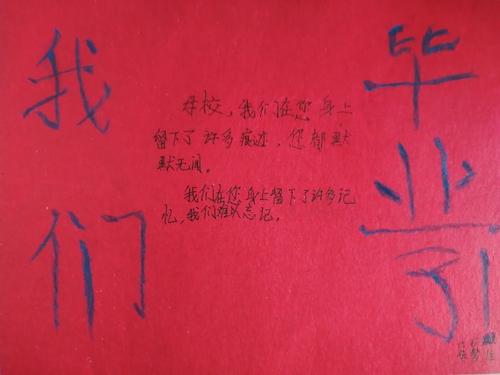 我们
毕业了
母校，我们在您身上
留下了许多痕迹，您都默
默无闻。
我们在您身上留下了许多记
忆，我们难以忘记。